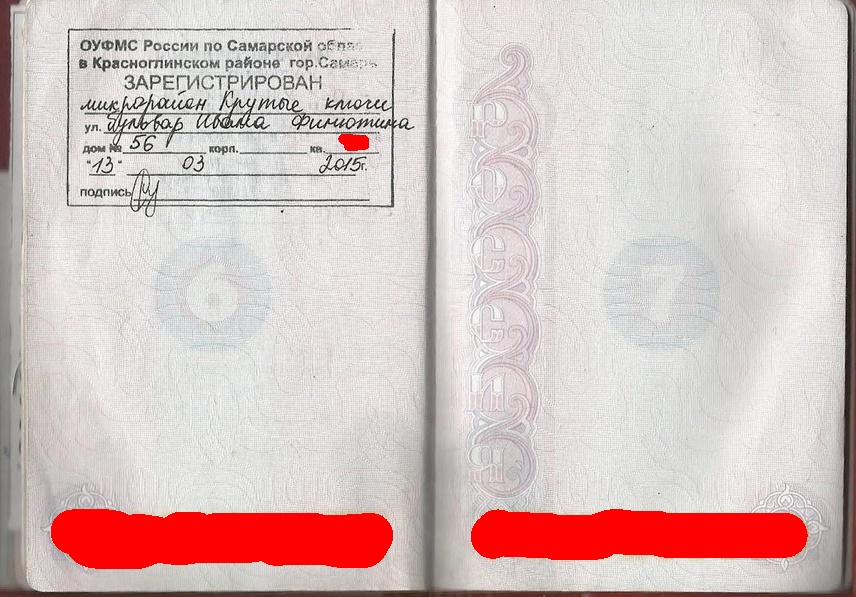 ОУФМС России по Самарской облас
в Красноглинском районе гор.Самары
ЗАРЕГИСТРИРОВАН
микрорайон Крутые ключи
ул. бульвар Ивана Финютина
дом № 56 корп. кв.
"13" 03 2015г.
подпись
6 7